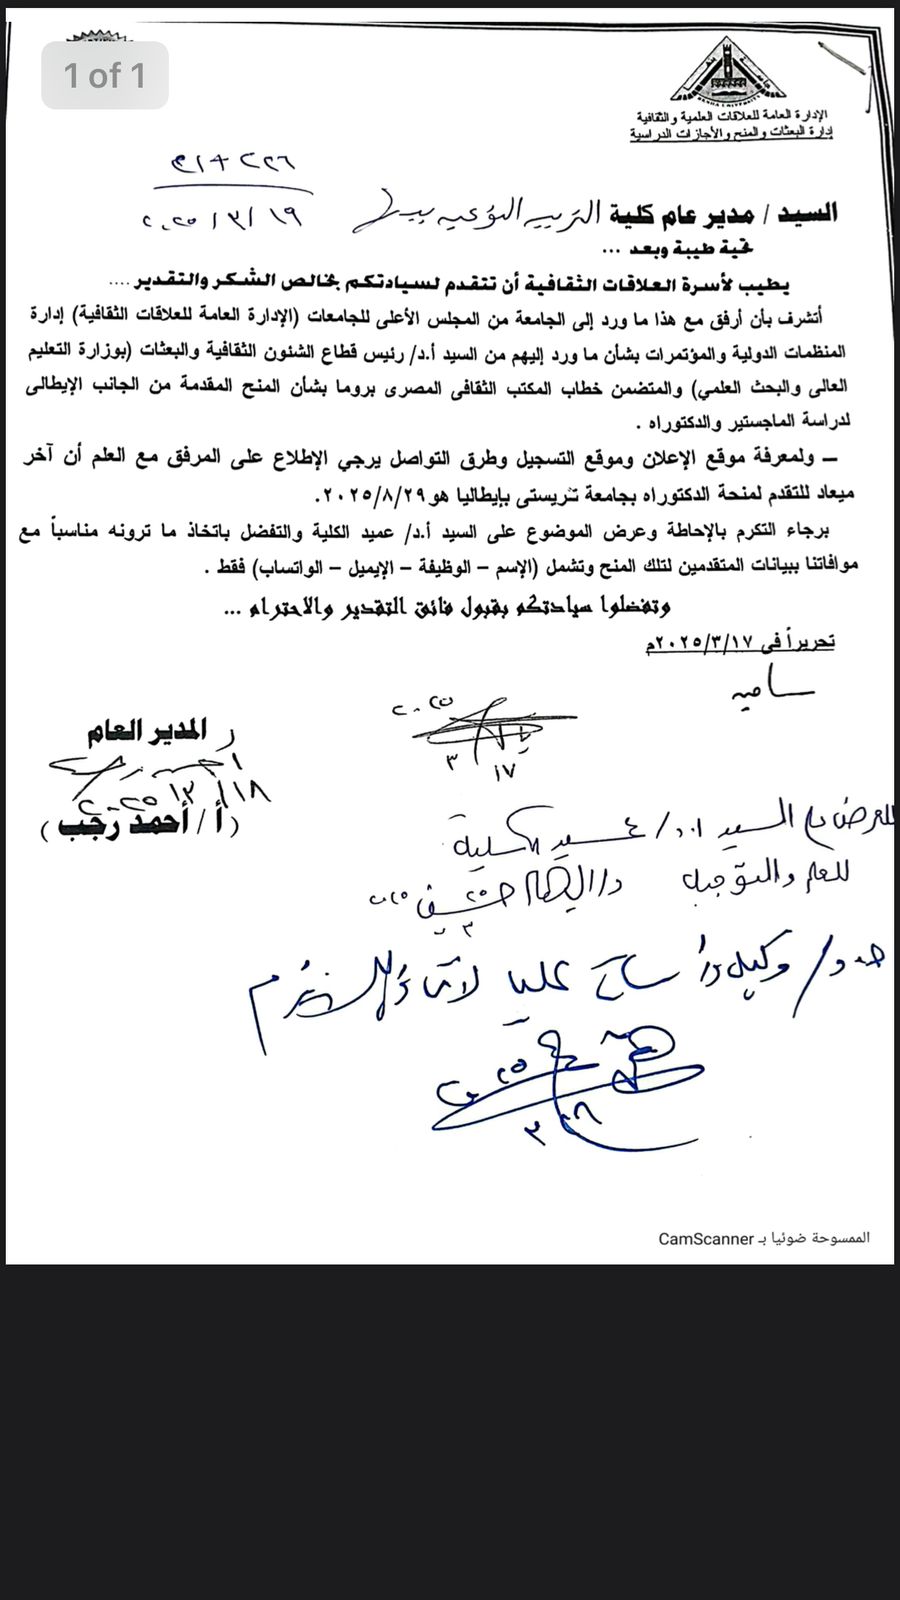 1 of 1
BENHA UNIVERSITY
الإدارة العامة للعلاقات العلمية والثقافية
إدارة البعثات والمنح والأجازات الدراسية
٢٠٢٥/٣/١٩
السيد / مدير عام كلية التربيه النوعيه
تحية طيبة وبعد ...
يطيب لأسرة العلاقات الثقافية أن تتقدم لسيادتكم بخالص الشكر والتقدير ....
أتشرف بأن أرفق مع هذا ما ورد إلى الجامعة من المجلس الأعلى للجامعات (الإدارة العامة للعلاقات الثقافية) إدارة
المنظمات الدولية والمؤتمرات بشأن ما ورد إليهم من السيد أ.د/ رئيس قطاع الشئون الثقافية والبعثات (بوزارة التعليم
العالى والبحث العلمي) والمتضمن خطاب المكتب الثقافى المصرى بروما بشأن المنح المقدمة من الجانب الإيطالى
لدراسة الماجستير والدكتوراه .
– ولمعرفة موقع الإعلان وموقع التسجيل وطرق التواصل يرجي الإطلاع على المرفق مع العلم أن آخر
ميعاد للتقدم لمنحة الدكتوراه بجامعة تريستى بإيطاليا هو ٢٠٢٥/٨/٢٩.
برجاء التكرم بالإحاطة وعرض الموضوع على السيد أ.د/ عميد الكلية والتفضل باتخاذ ما ترونه مناسباً مع
موافاتنا ببيانات المتقدمين لتلك المنح وتشمل (الإسم – الوظيفة – الإيميل – الواتساب) فقط .
وتفضلوا سيادتكم بقبول فائق التقدير والاحترام ...
تحريراً فى ٢٠٢٥/٣/١٧م
ساميه
٢٠٢٥
٣
١٧
المدير العام
٢٠٢٥/٣/١٨
(أ / أحمد رجب)
للعرض على السيد ا.د/ عميد الكلية
للعلم والتوجيه
وكيل
الممسوحة ضوئيا بـ CamScanner